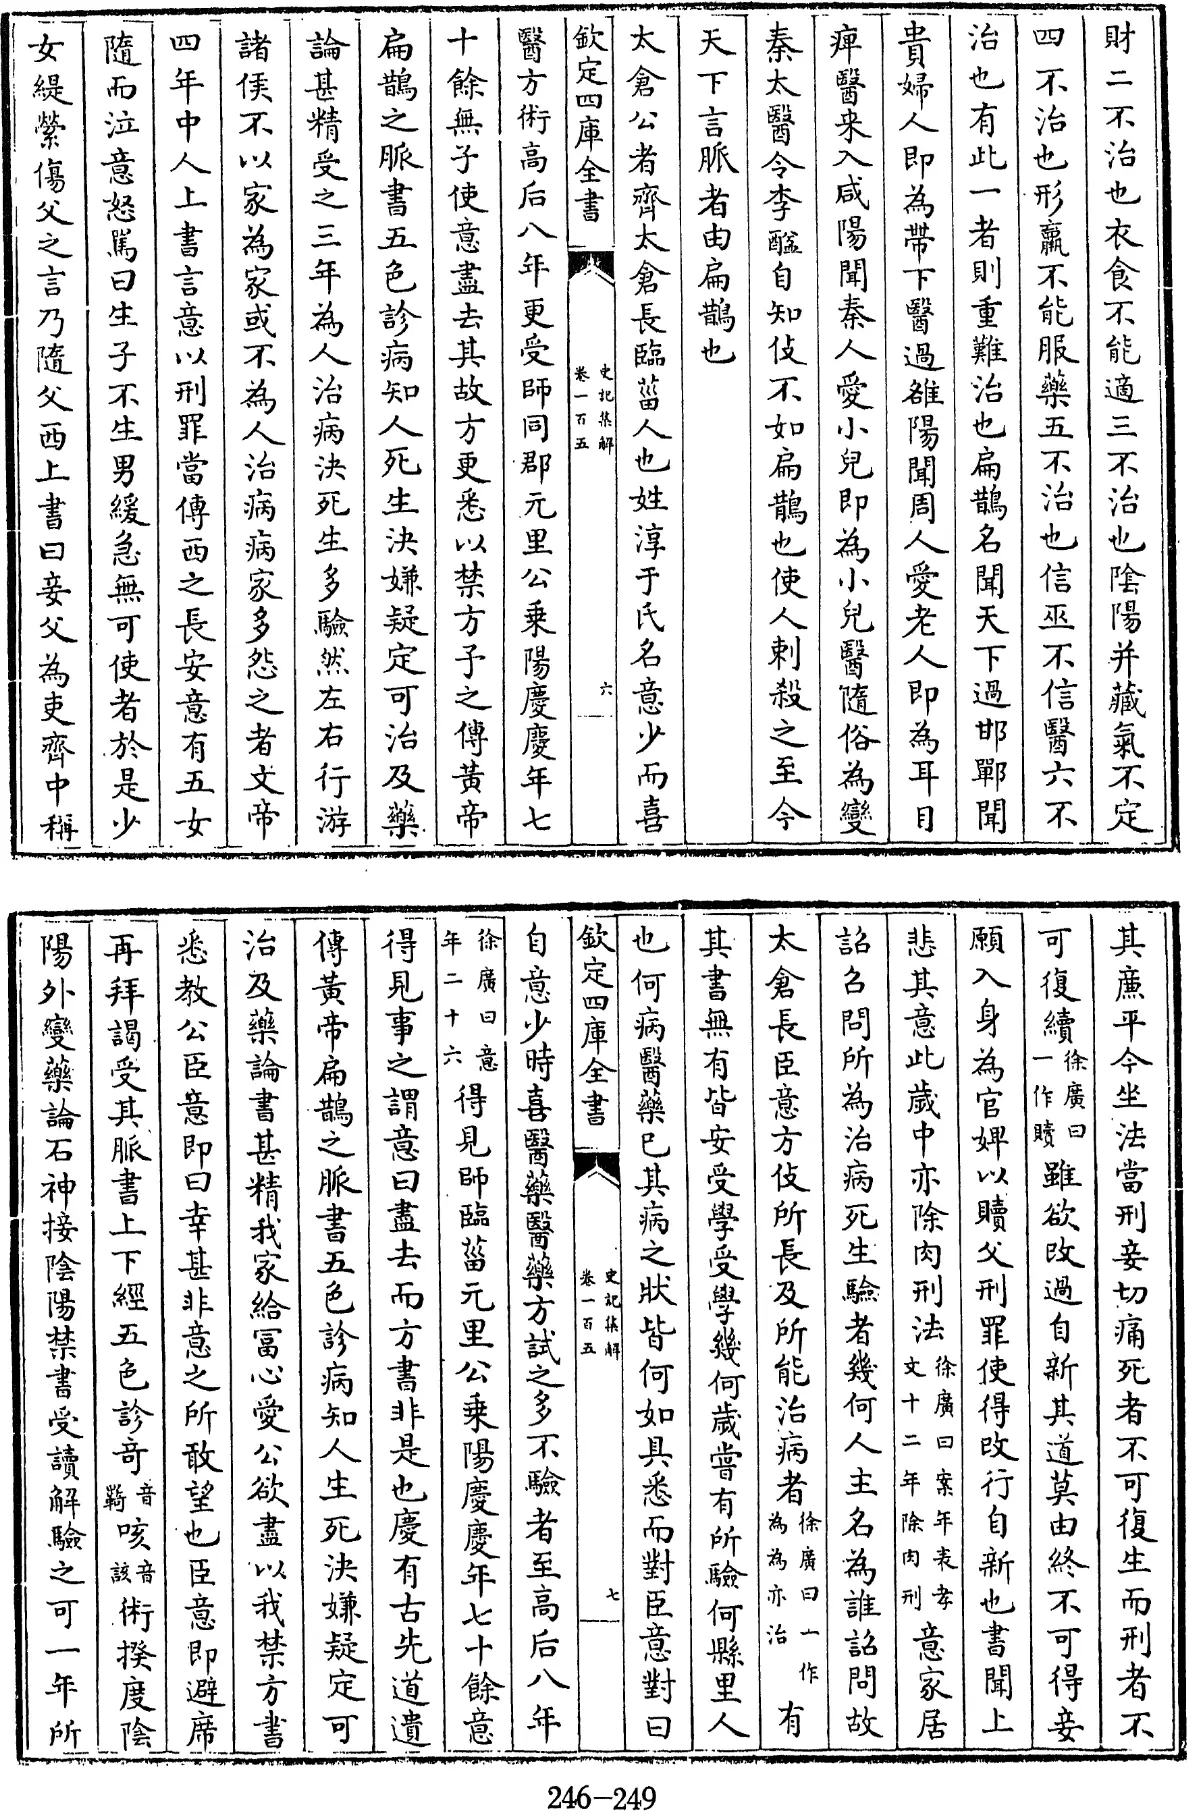 財二不治也衣食不能適三不治也陰陽并藏氣不定
四不治也形羸不能服藥五不治也信巫不信醫六不
治也有此一者則重難治也扁鵲名聞天下過邯鄲聞
貴婦人即為帶下醫過雒陽聞周人愛老人即為耳目
痺醫来入咸陽聞秦人愛小兒即為小兒醫隨俗為變
秦太醫令李醯自知伎不如扁鵲也使人刺殺之至今
天下言脈者由扁鵲也
太倉公者齊太倉長臨菑人也姓淳于氏名意少而喜
欽定四庫全書
史記集解
卷一百五
六
醫方術高后八年更受師同郡元里公乗陽慶慶年七
十餘無子使意盡去其故方更悉以禁方予之傳黃帝
扁鵲之脈書五色診病知人死生決嫌疑定可治及藥
論甚精受之三年為人治病決死生多驗然左右行游
諸侯不以家為家或不為人治病病家多怨之者文帝
四年中人上書言意以刑罪當傳西之長安意有五女
隨而泣意怒罵曰生子不生男緩急無可使者於是少
女緹縈傷父之言乃隨父西上書曰妾父為吏齊中稱
其廉平今坐法當刑妾切痛死者不可復生而刑者不
可復續徐廣曰一作贖雖欲改過自新其道莫由終不可得妾
願入身為官婢以贖父刑罪使得改行自新也書聞上
悲其意此歲中亦除肉刑法徐廣曰案年表孝文十二年除肉刑意家居
詔召問所為治病死生驗者幾何人主名為誰詔問故
太倉長臣意方伎所長及所能治病者徐廣曰一作為為亦治有
其書無有皆安受學受學幾何歲嘗有所驗何縣里人
也何病醫藥已其病之狀皆何如具悉而對臣意對曰
欽定四庫全書
史記集解
卷一百五
七
自意少時喜醫藥醫藥方試之多不驗者至高后八年
徐廣曰意年二十六得見師臨菑元里公乗陽慶慶年七十餘意
得見事之謂意曰盡去而方書非是也慶有古先道遺
傳黃帝扁鵲之脈書五色診病知人生死決嫌疑定可
治及藥論書甚精我家給富心愛公欲盡以我禁方書
悉教公臣意即曰幸甚非意之所敢望也臣意即避席
再拜謁受其脈書上下經五色診奇音羇咳音該術揆度陰
陽外變藥論石神接陰陽禁書受讀解驗之可一年所
246-249